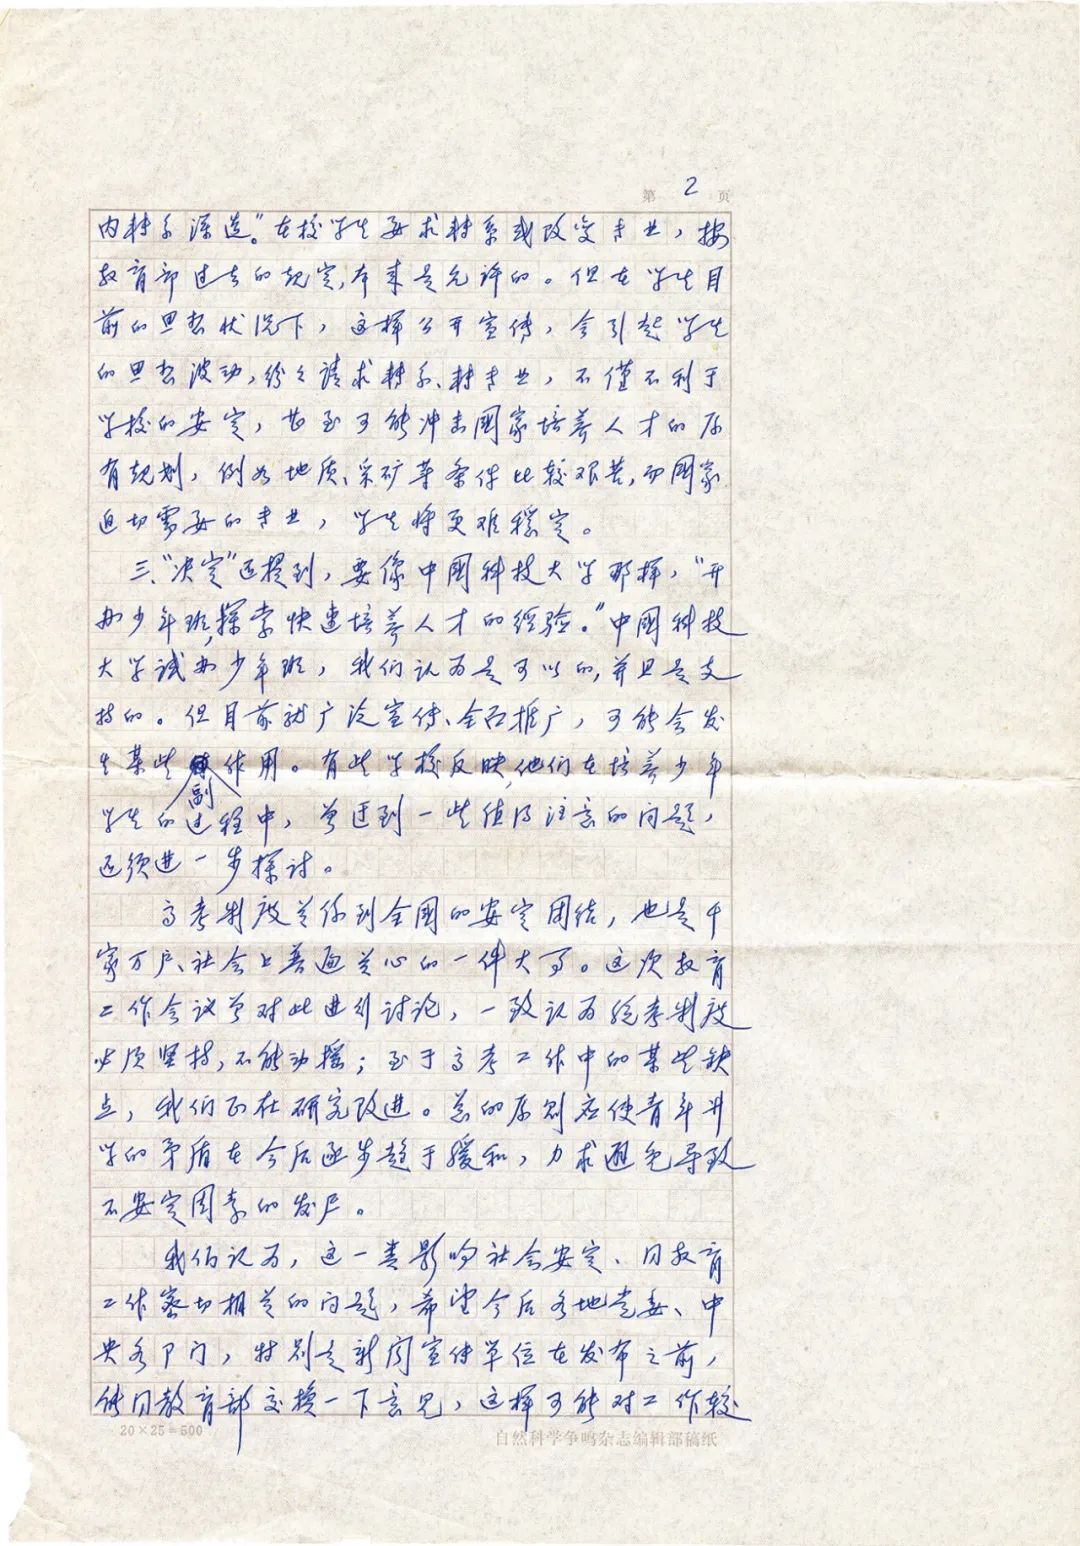 第 2 页
内转系深造。”在校学生要求转系或改变专业，按
教育部过去的规定，本来是允许的。但在学生目
前的思想状况下，这样公开宣传，会引起学生
的思想波动，纷纷请求转系、转专业，不仅不利于
学校的安定，甚至可能冲击國家培养人才的原
有规划，例如地质、采矿等条件比较艰苦，而國家
迫切需要的专业，学生将更难稳定。
三、“决定”还提到，要像中國科技大学那样，“开
办少年班，探索快速培养人才的经验。”中國科技
大学试办少年班，我们认为是可以的，并且是支
持的。但目前就广泛宣传、全面推广，可能会发
生某些副作用。有些学校反映，他们在培养少年
学生的过程中，曾遇到一些值得注意的问题，
还须进一步探讨。
高考制度关系到全國的安定团结，也是千
家万户、社会上普遍关心的一件大事。这次教育
工作会议曾对此进行讨论，一致认为统考制度
必须坚持，不能动摇；至于高考工作中的某些缺
点，我们正在研究改进。总的原则应使青年升
学的矛盾在今后逐步趋于缓和，力求避免导致
不安定因素的发展。
我们认为，这一类影响社会安定、同教育
工作密切相关的问题，希望今后各地党委、中
央各部门，特别是新闻宣传单位在发布之前，
能同教育部交换一下意见，这样可能对工作较
20×25=500
自然科学争鸣杂志编辑部稿纸